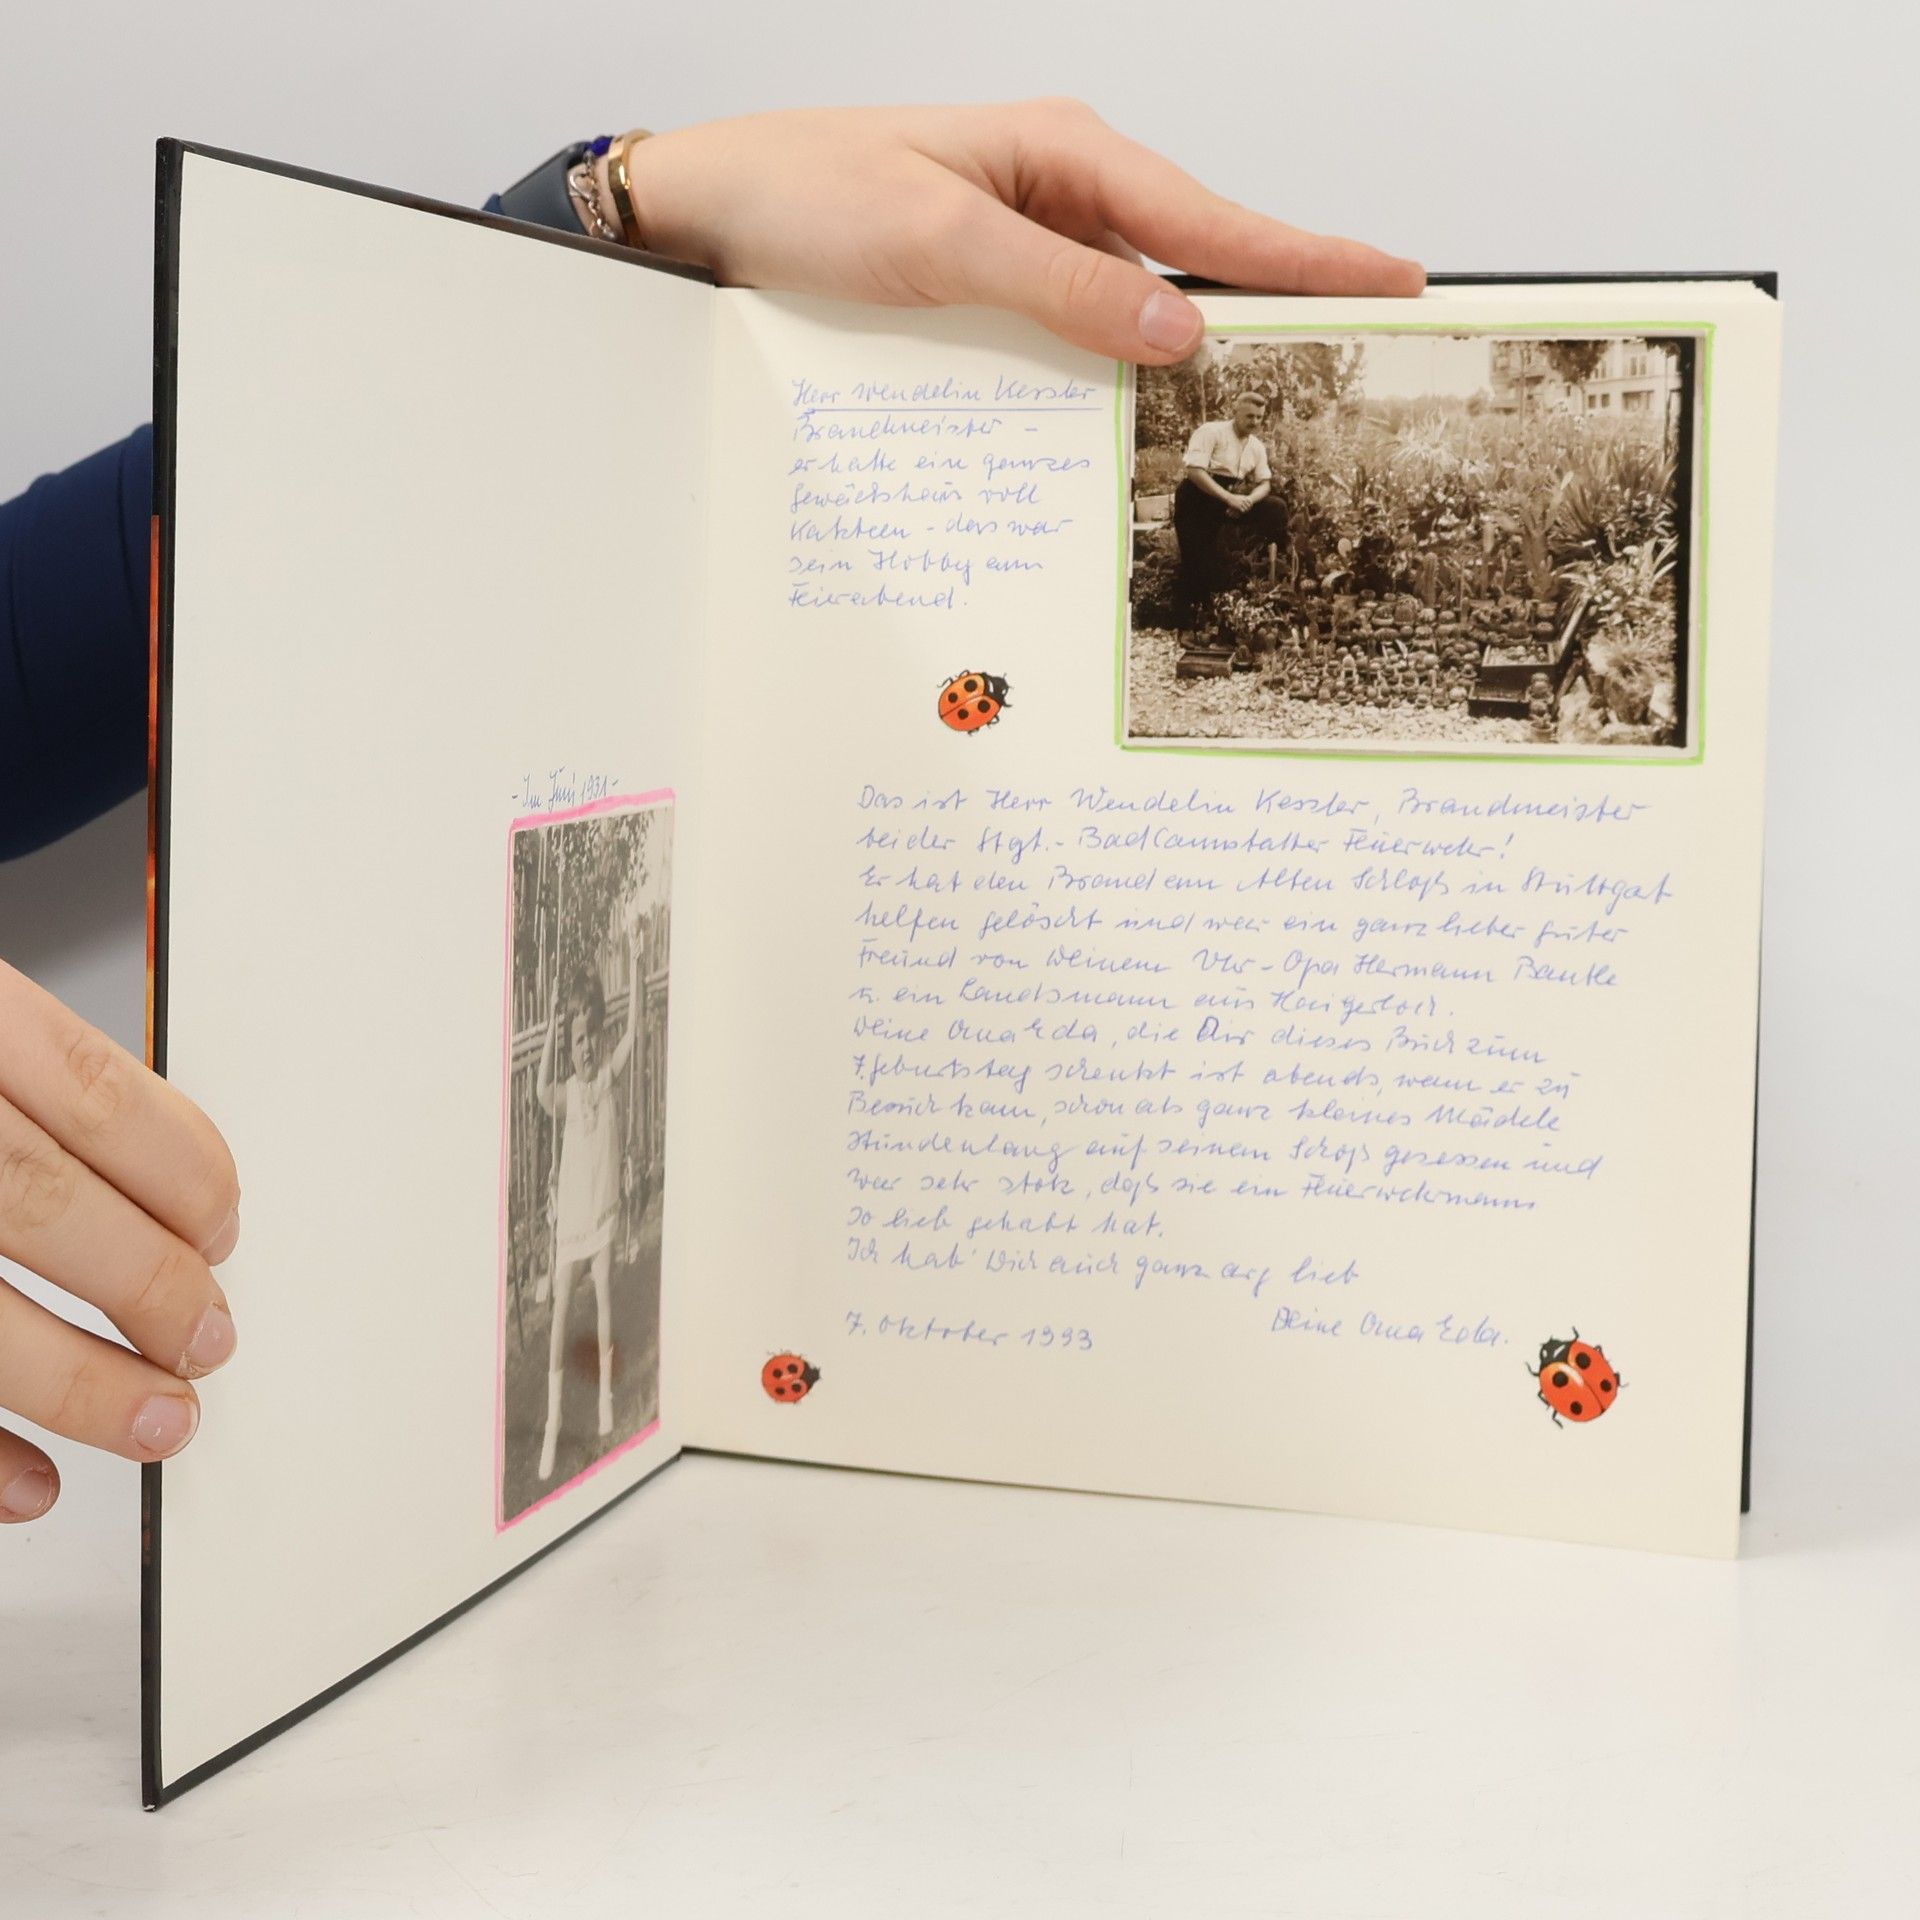 -Im Juni 1931-
Herr Wendelin Kessler
Brandmeister -
er hatte ein ganzes
Gewächshaus voll
Kakteen - das war
sein Hobby am
Feierabend.
Das ist Herr Wendelin Kessler, Brandmeister
bei der Stgt.- Bad Cannstatter Feuerwehr!
Er hat den Brand am Alten Schloß in Stuttgart
helfen gelöscht und war ein ganz lieber guter
Freund von Deinem Ur-Opa Hermann Bantle
u. ein Landsmann aus Haigerloch.
Deine Oma Eda, die Dir dieses Buch zum
7. Geburtstag schenkt ist abends, wenn er zu
Besuch kam, schon als ganz kleines Mädele
stundenlang auf seinem Schoß gesessen und
war sehr stolz, daß sie ein Feuerwehrmann
so lieb gehabt hat.
Ich hab' Dich auch ganz arg lieb
7. Oktober 1993
Deine Oma Eda.